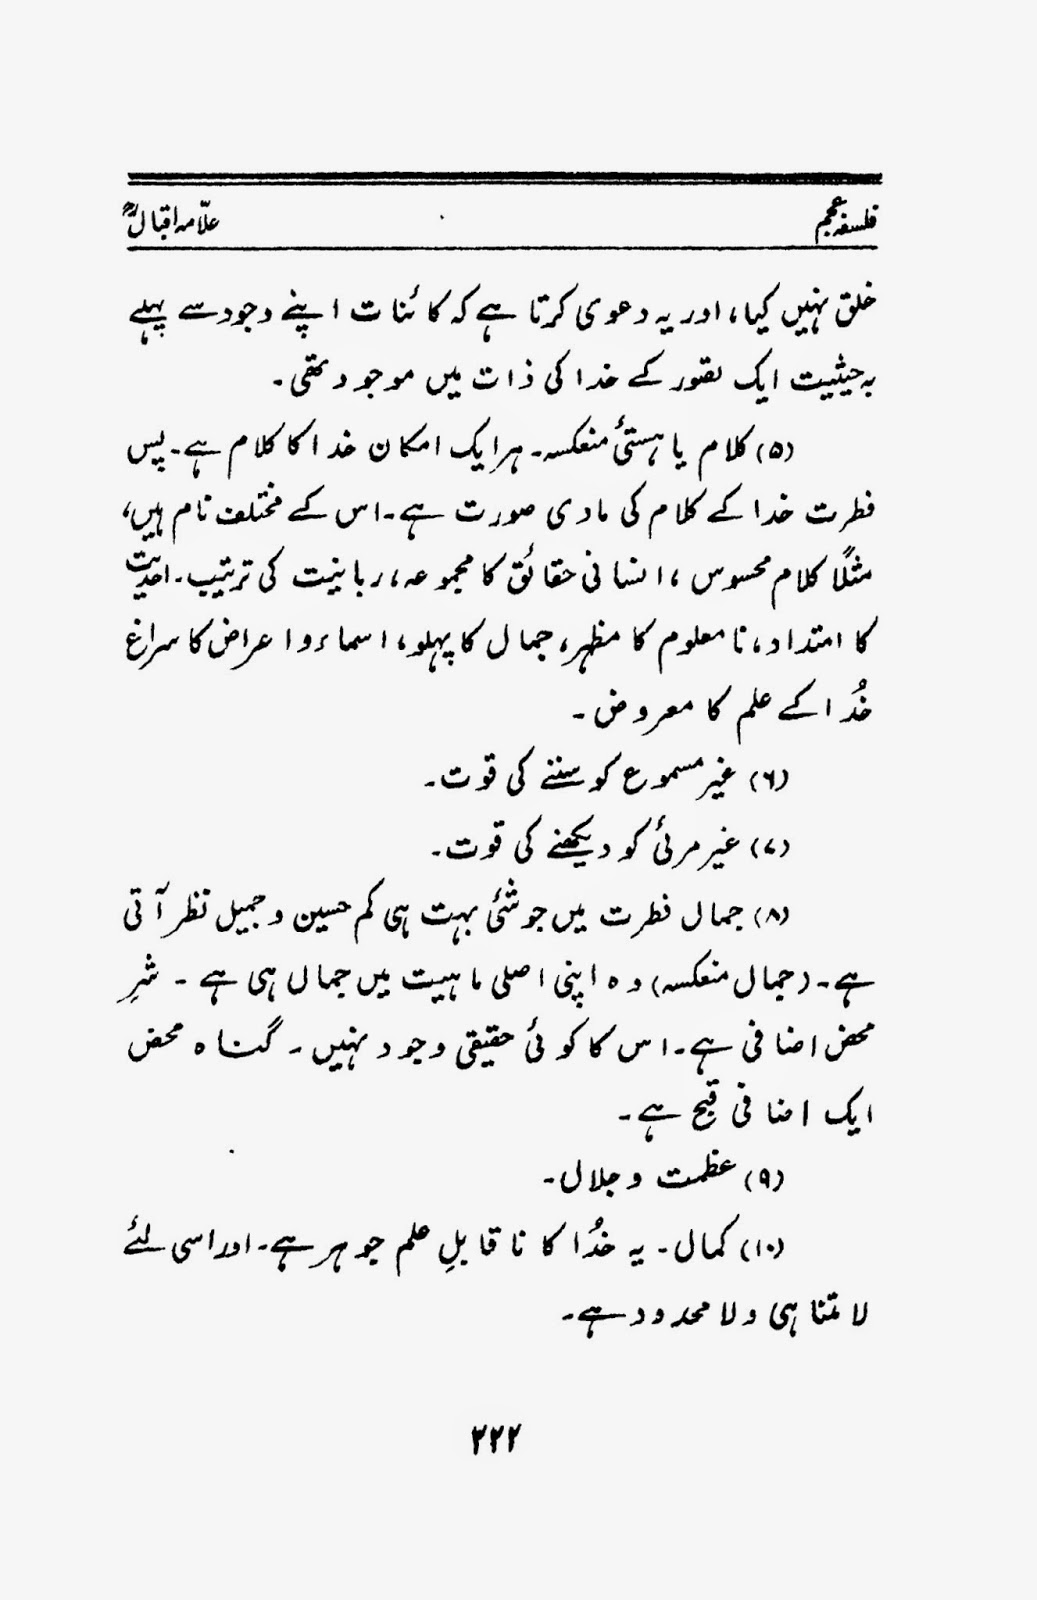 فلسفہ عجم
علّامہ اقبالؒ
خلق نہیں کیا، اور یہ دعوی کرتا ہے کہ کائنات اپنے وجود سے پہلے
بہ حیثیت ایک تصور کے خدا کی ذات میں موجود تھی۔
(۵) کلام یا ہستیٔ منعکسہ۔ ہر ایک امکان خدا کا کلام ہے۔ پس
فطرت خدا کے کلام کی مادی صورت ہے۔ اس کے مختلف نام ہیں،
مثلاً کلام محسوس، انسانی حقائق کا مجموعہ، ربانیت کی ترتیب۔ احدیت
کا امتداد، نا معلوم کا مظہر، جمال کا پہلو، اسماء و اعراض کا سراغ
خُدا کے علم کا معروض۔
(۶) غیر مسموع کو سننے کی قوت۔
(۷) غیر مرئی کو دیکھنے کی قوت۔
(۸) جمال فطرت میں جو شئی بہت ہی کم حسین و جمیل نظر آتی
ہے۔ (جمال منعکسہ) وہ اپنی اصلی ماہیت میں جمال ہی ہے ۔ شرِ
محض اضافی ہے۔ اس کا کوئی حقیقی وجود نہیں ۔ گناہ محض
ایک اضافی قبح ہے۔
(۹) عظمت و جلال۔
(۱۰) کمال۔ یہ خُدا کا نا قابلِ علم جوہر ہے۔ اور اسی لئے
لا متناہی و لا محدود ہے۔
۲۲۲